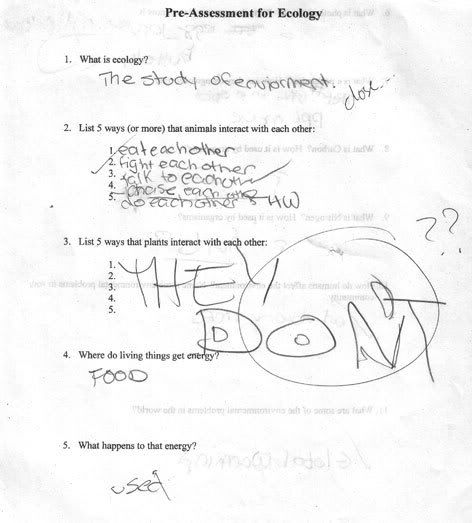 Pre-Assessment for Ecology
1. What is ecology?
The study of enviorment.
close...
2. List 5 ways (or more) that animals interact with each other:
1. eat eachother
2. fight each other
3. talk to eachother
4. chaise each other
5. do eachother HW
3. List 5 ways that plants interact with each other:
1.
2.
3.
4.
5.
THEY
DONT
??
4. Where do living things get energy?
FOOD
5. What happens to that energy?
used